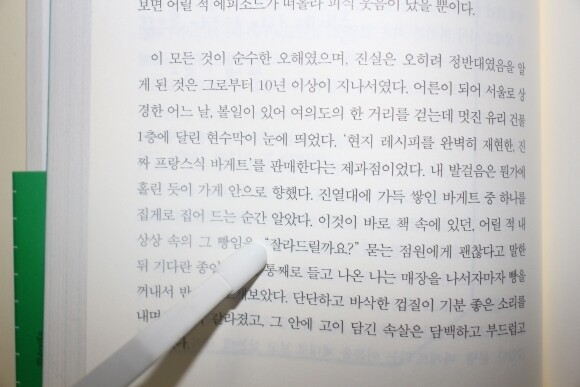 보면 어릴 적 에피소드가 떠올라 피식 웃음이 났을 뿐이다.
이 모든 것이 순수한 오해였으며, 진실은 오히려 정반대였음을 알
게 된 것은 그로부터 10년 이상이 지나서였다. 어른이 되어 서울로 상
경한 어느 날, 볼일이 있어 여의도의 한 거리를 걷는데 멋진 유리 건물
1층에 달린 현수막이 눈에 띄었다. ‘현지 레시피를 완벽히 재현한, 진
짜 프랑스식 바게트’를 판매한다는 제과점이었다. 내 발걸음은 뭔가에
홀린 듯이 가게 안으로 향했다. 진열대에 가득 쌓인 바게트 중 하나를
집게로 집어 드는 순간 알았다. 이것이 바로 책 속에 있던, 어릴 적 내
상상 속의 그 빵임을. “잘라드릴까요?” 묻는 점원에게 괜찮다고 말한
뒤 기다란 통째로 들고 나온 나는 매장을 나서자마자 빵을
꺼내서 단단하고 바삭한 껍질이 기분 좋은 소리를
내며 갈라졌고, 그 안에 고이 담긴 속살은 담백하고 부드럽고